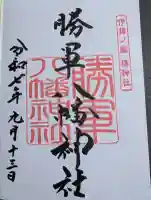 勝軍八幡神社
令和七年九月十三日
勝軍
八幡神社